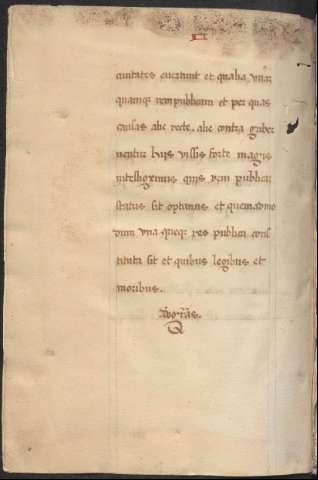 ciuitates euertunt et qualia vnam
quamque rem publicam et per quas
causas alie recte, alie contra guber
nentur hiis vissis forte magis
intelligemus quis rem publice
status sit optimus et quemadmo
dum vna queque res publica cons
tituta sit et quibus legibus et
moribus.